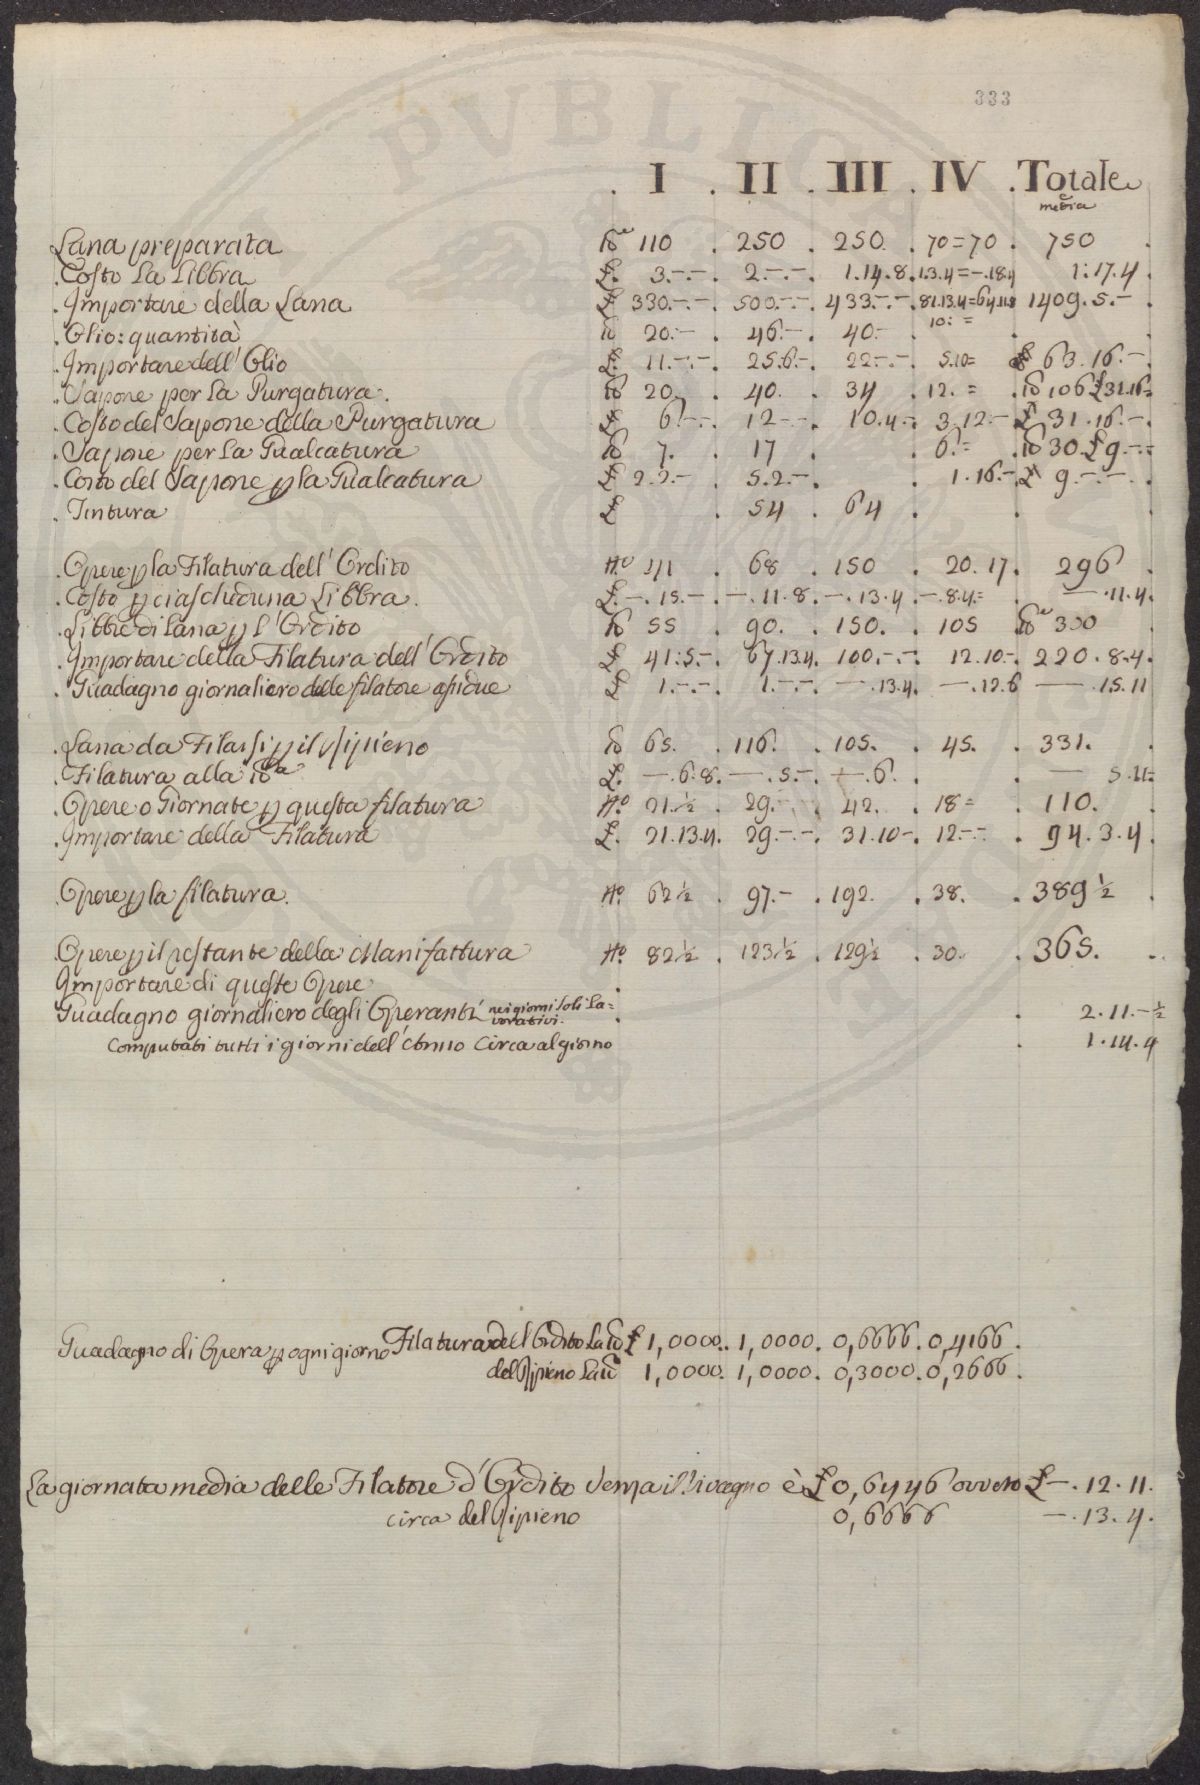 333
. I . II . III . IV . Totale
media
Lana preparata lb.e 110 . 250 . 250 . 70=70 . 750 .
. Costo La Libbra £. 3.-.- 2.-.- 1.14.8. 1.3.4=-.18.4 1.17.4.
. Importare della Lana £ 330.-.- 500.-.- 433.-.- 81.13.4=64. 1409.5.-
. Olio: quantità lb 20.- . 46.- . 40.- . 10: = . .
. Importare dell' Olio £. 11.-.- . 25.6.- . 22.-.- . 5.10= £ 63.16.-.
. Sapone per La Purgatura. lb 20. . 40. . 34 . 12. = . lb 106 £ 31.16=
. Costo del Sapone della Purgatura £ 6.-.- . 12.-.- . 10.4.- . 3.12.- £ 31.16.-.
. Sapone per La Gualcatura lb 7. . 17 . . 6.= . lb 30. £ 9.-.-
. Costo del Sapone p la Gualcatura £ 2.2.- . 5.2.- . . 1.16.- £ 9.-.-.
. Tintura £ . 54 . 64 . . .
. Opere p la Filatura dell' Ordito N.o 41 . 68 . 150 . 20.17. 296 .
. Costo p ciascheduna Libbra. £. -.15.- . -.11.8. -.13.4. -.8.4.= . -.11.4.
. Libbre di Lana p l' Ordito lb 55 . 90. . 150. . 105 lb.e 300 .
. Importare della Filatura dell' Ordito £ 41:5.- . 67.13.4. 100.-.- . 12.10.-. 220.8.4.
. Guadagno giornaliero delle filatore assidue £ 1.-.- . 1.-.- . -.13.4. -.12.6 - .15.11
. Lana da Filarsi p il ripieno lb 65. . 116. . 105. . 45. . 331. .
. Filatura alla lb.a £. -.6.8. -.5.- . -.6. . . - 5.11.
. Opere o Giornate p questa filatura N.o 21.½ . 29. . 42. . 18= . 110.
. Importare della Filatura £. 21.13.4. 29.-.- . 31.10-. 12.-.- . 94.3.4.
. Opere p la filatura. N.o 62½ . 97.- . 192. . 38. . 389½ .
. Opere p il restante della Manifattura N.o 82½ . 123½ . 129½ . 30. . 365. .
Importare di queste Opere .
Guadagno giornaliero degli Operanti nei giorni soli La=
vorativi. . . 2.11.-½
Computati tutti i giorni dell' Anno Circa al giorno . 1.14.4
Guadagno di Opera p ogni giorno Filatura dell Ordito La lb £ 1,0000. 1,0000. 0,6666. 0,4166.
del Ripieno La lb 1,0000. 1,0000. 0,3000. 0,2666.
La giornata media delle Filatore d' Ordito senza il è £ 0,6446 ovvero £ -.12.11.
circa del Ripieno 0,6666 -.13.4.